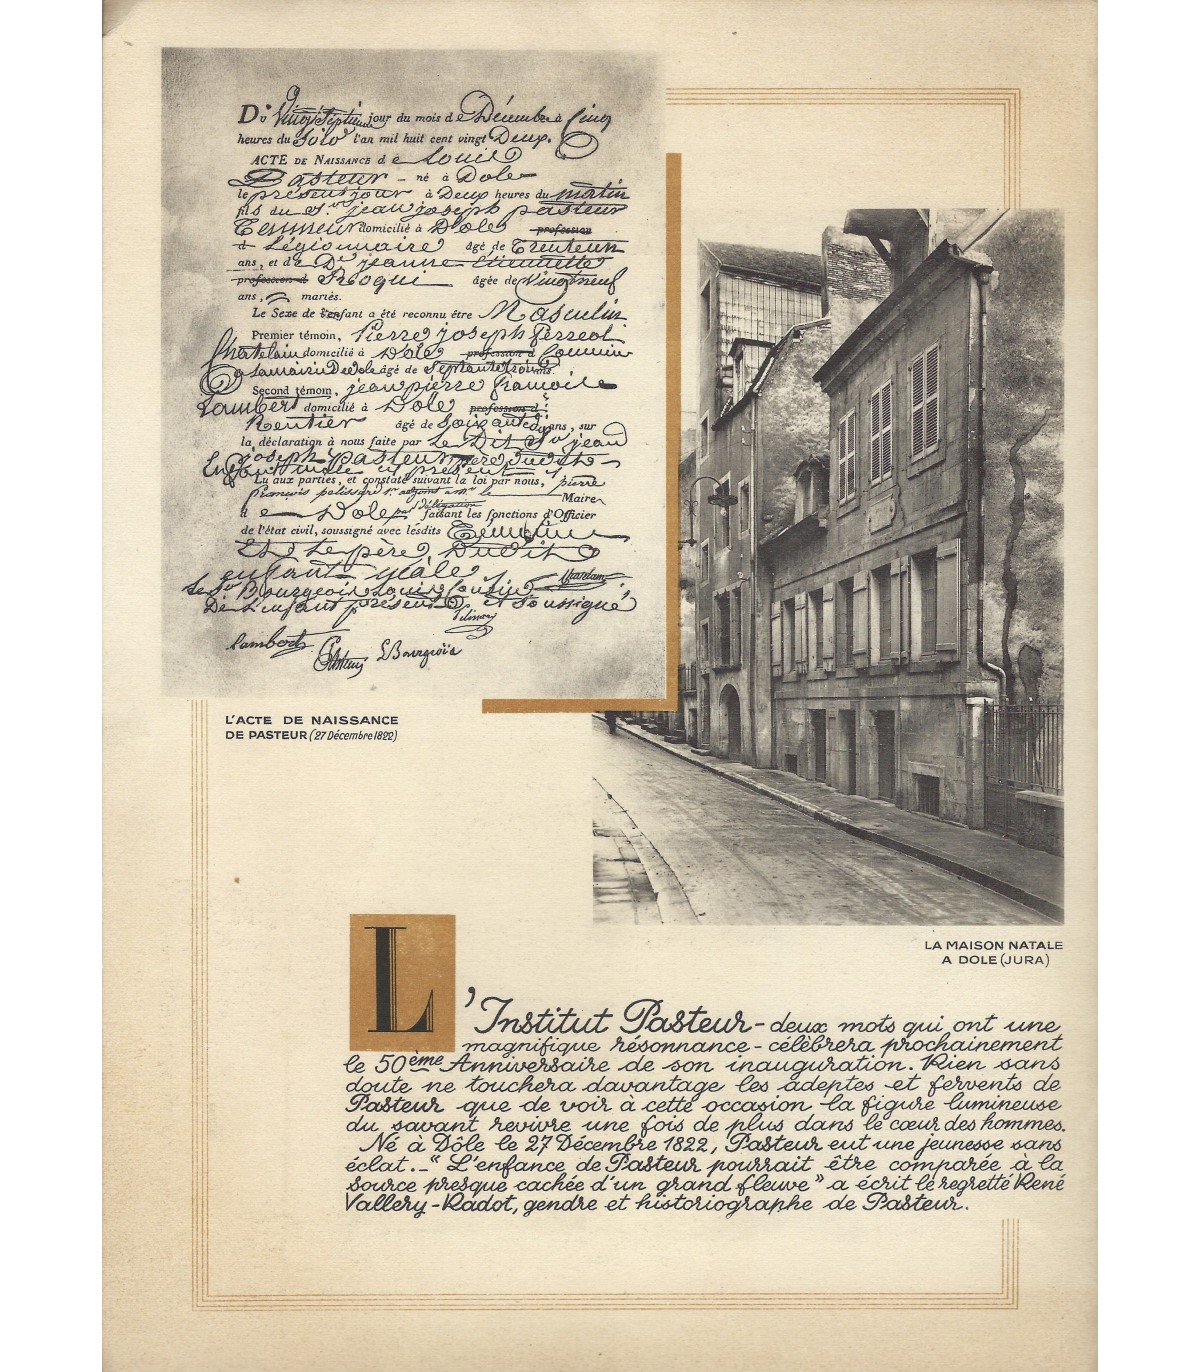 Du Vingt Septième jour du mois de Décembre à Cinq
heures du Soir l'an mil huit cent vingt Deux.
ACTE DE NAISSANCE de Louis
Pasteur né à Dole
le présent jour à Deux heures du matin
fils du Sr jean joseph pasteur
Tanneur domicilié à Dole profession
d Légionnaire âgé de Trente un
ans, et de De jeanne Etiennette
profession d Roqui âgée de Vingt neuf
ans, mariés.
Le Sexe de l'enfant a été reconnu être Masculin
Premier témoin, Pierre joseph ferreol
Chatelain domicilié à Dole profession d Commis
a la mairie De dole âgé de Septante trois ans.
Second témoin, jean pierre françois
Lambert domicilié à Dole profession d
Rentier âgé de Soixante ans, sur
la déclaration à nous faite par Le Dit Sr jean
joseph pasteur père Dudit
Enfant male ci présent
Lu aux parties, et constaté suivant la loi par nous, pierre
françois Maire
de Dole par délégation faisant les fonctions d'Officier
de l'état civil, soussigné avec lesdits Temoins
Et Le père Dudit
enfant male
Le Sr Bourgeois Louis Cousin Chatelain
De l'enfant présent et Soussigné
Lambert
LBourgeois
L'ACTE DE NAISSANCE
DE PASTEUR (27 Décembre 1822)
LA MAISON NATALE
A DOLE (JURA)
L'Institut Pasteur – deux mots qui ont une
magnifique résonnance – célèbrera prochainement
le 50ème Anniversaire de son inauguration. Rien sans
doute ne touchera davantage les adeptes et fervents de
Pasteur que de voir à cette occasion la figure lumineuse
du savant revivre une fois de plus dans le cœur des hommes.
Né à Dôle le 27 Décembre 1822, Pasteur eut une jeunesse sans
éclat. – "L'enfance de Pasteur pourrait être comparée à la
source presque cachée d'un grand fleuve" a écrit le regretté René
Vallery-Radot, gendre et historiographe de Pasteur.